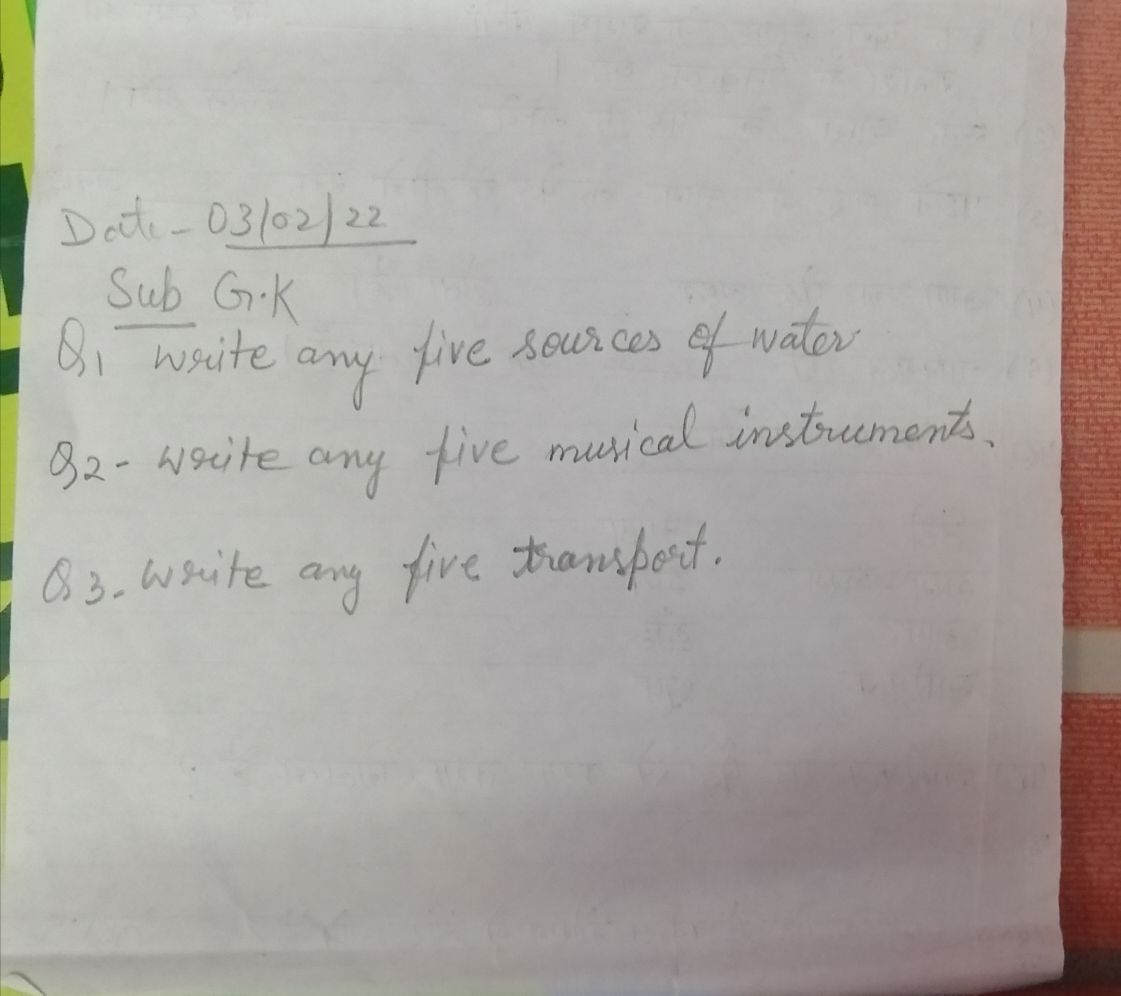 Date - 03/02/22
Sub G.K
Q1 write any five sources of water
Q2 - write any five musical instruments.
Q3 - write any five transport.